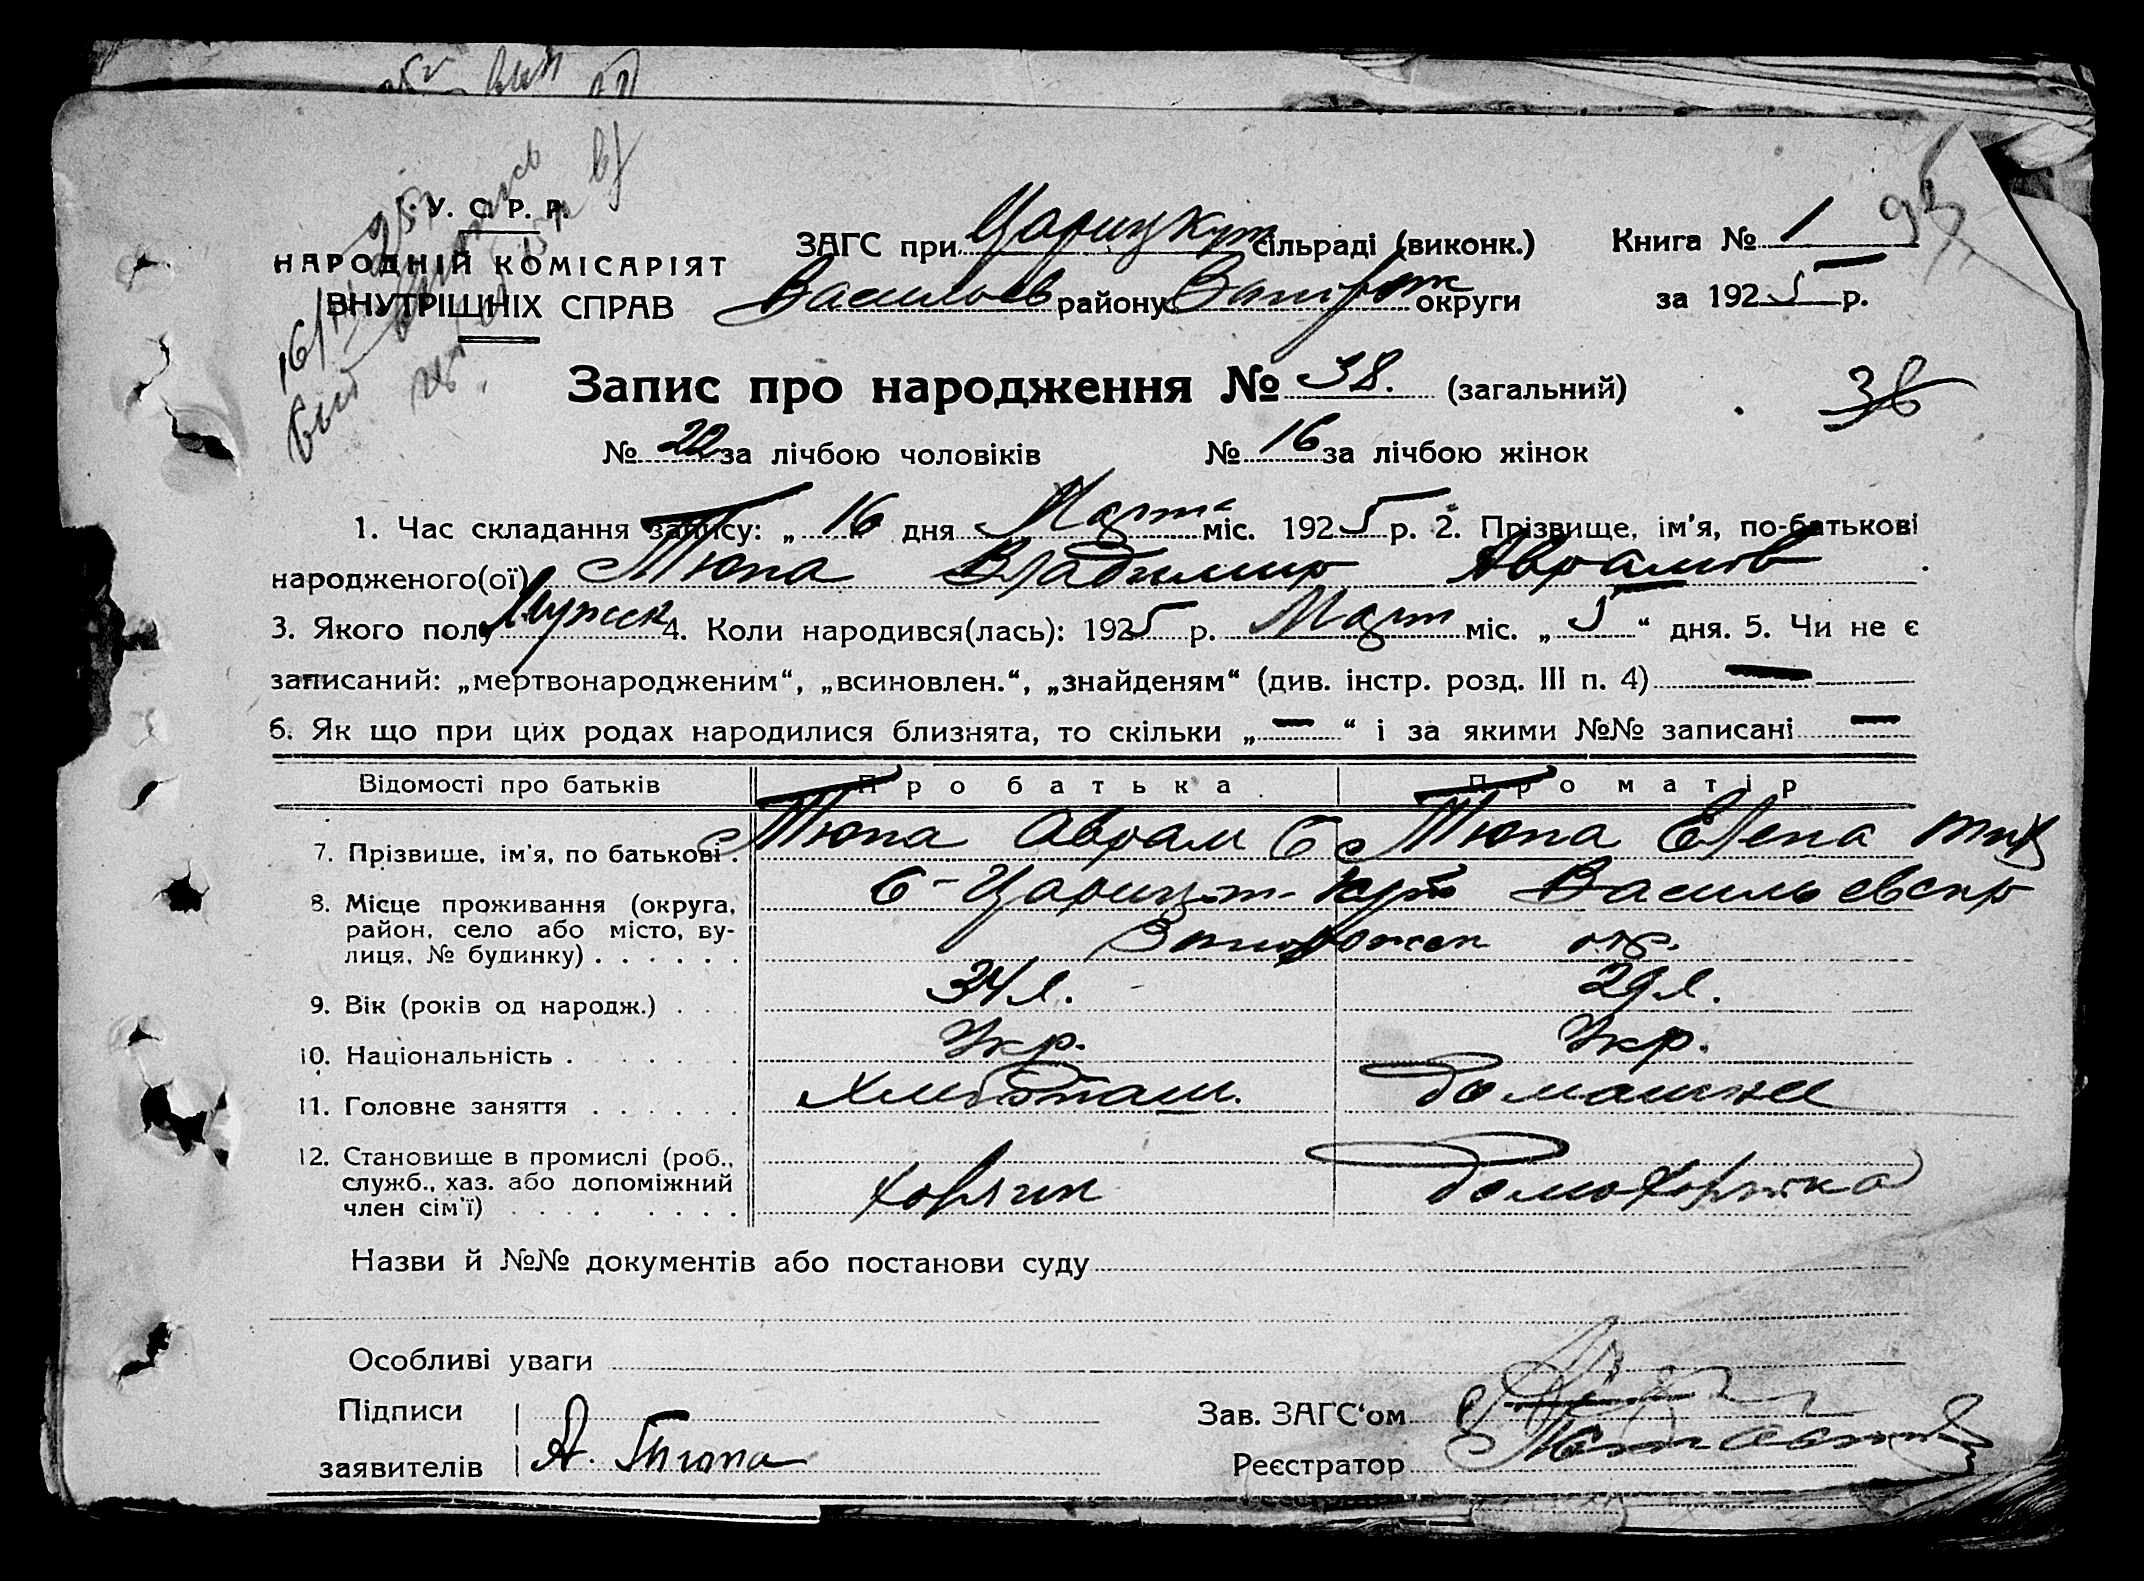 У. С. Р. Р.
НАРОДНІЙ КОМІСАРІЯТ
ВНУТРІШНІХ СПРАВ
ЗАГС при Царицкут сільраді (виконк.) Книга № 1
Васильев району Запорож округи за 1925 р.
Запис про народження № 38. (загальний) 38
№ 22 за лічбою чоловіків № 16 за лічбою жінок
1. Час складання запису: „ 16 дня Марта міс. 1925 р. 2. Прізвище, ім'я, по-батькові
народженого(ої) Тюпа Владимир Аврамов
3. Якого полу Мужск 4. Коли народився(лась): 1925 р. Март міс. „ 5 “ дня. 5. Чи не є
записаний: „мертвонародженим“, „всиновлен.“, „знайденям“ (див. інстр. розд. III п. 4) —
6. Як що при цих родах народилися близнята, то скільки „ — “ і за якими №№ записані —
Відомості про батьків Про батька Про матір
7. Прізвище, ім'я, по батькові . Тюпа Аврам Тюпа Елена
8. Місце проживання (округа, Васильевск
район, село або місто, ву-
лиця, № будинку) . . . . . . Запорожск окр.
9. Вік (років од народж.) . . . 34 л. 29 л.
10. Національність . . . . . . Укр. Укр.
11. Головне заняття . . . . . . Хлебопаш. домашнее
12. Становище в промислі (роб.,
служб., хаз. або допоміжний
член сім'ї) . . . . . . . .
Назви й №№ документів або постанови суду
Особливі уваги
Підписи Зав. ЗАГС'ом
заявителів А. Тюпа Реєстратор